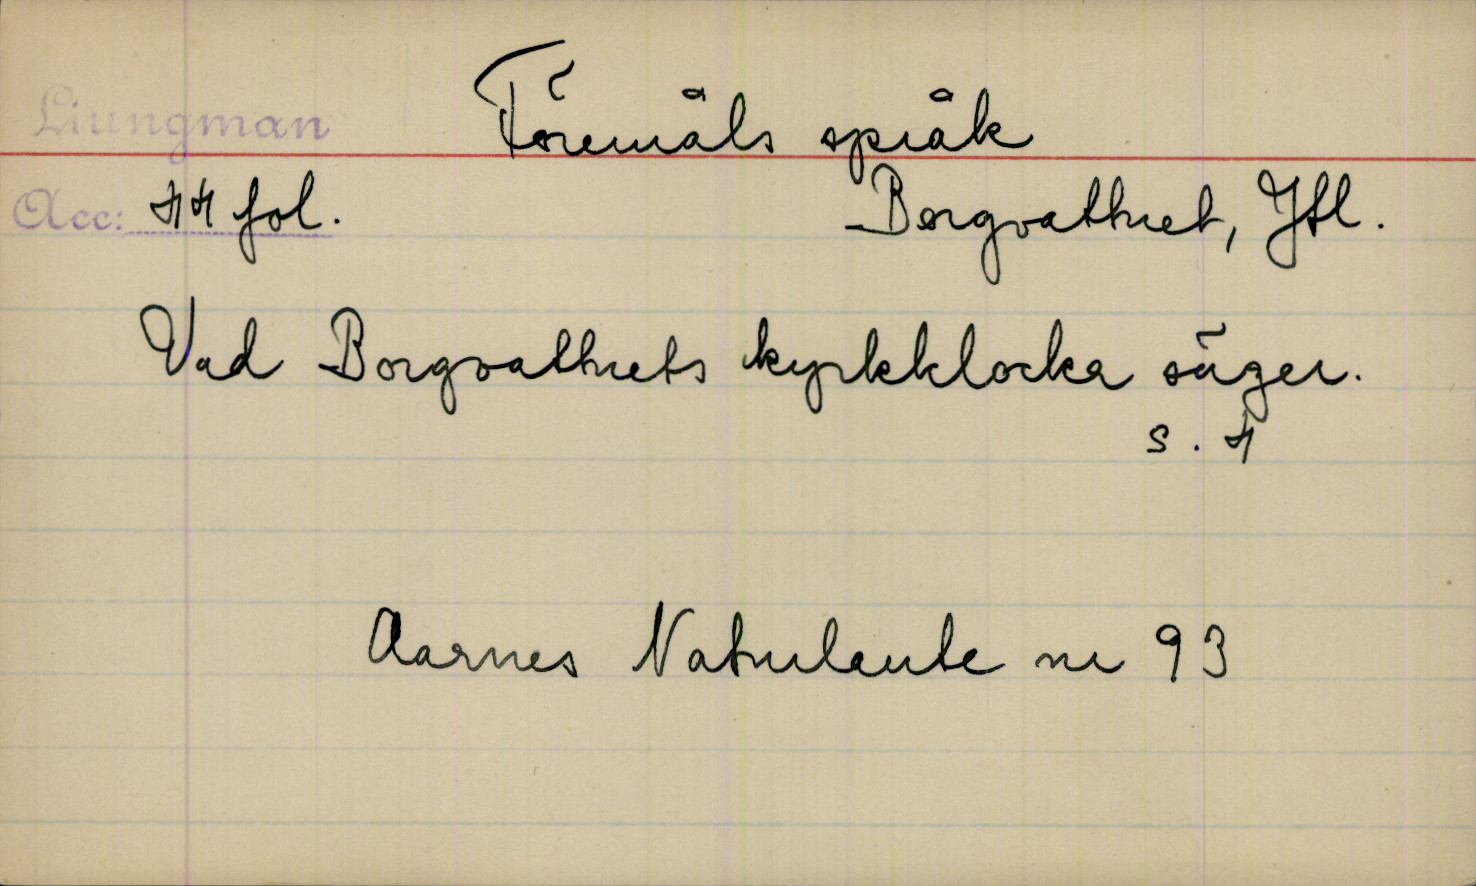 Liungman
Föremåls språk
Acc: 44 fol.
Borgvattnet, Jtl.
Vad Borgvattnets kyrkklocka säger.
s. 4
Aarnes Naturlaute nr 93